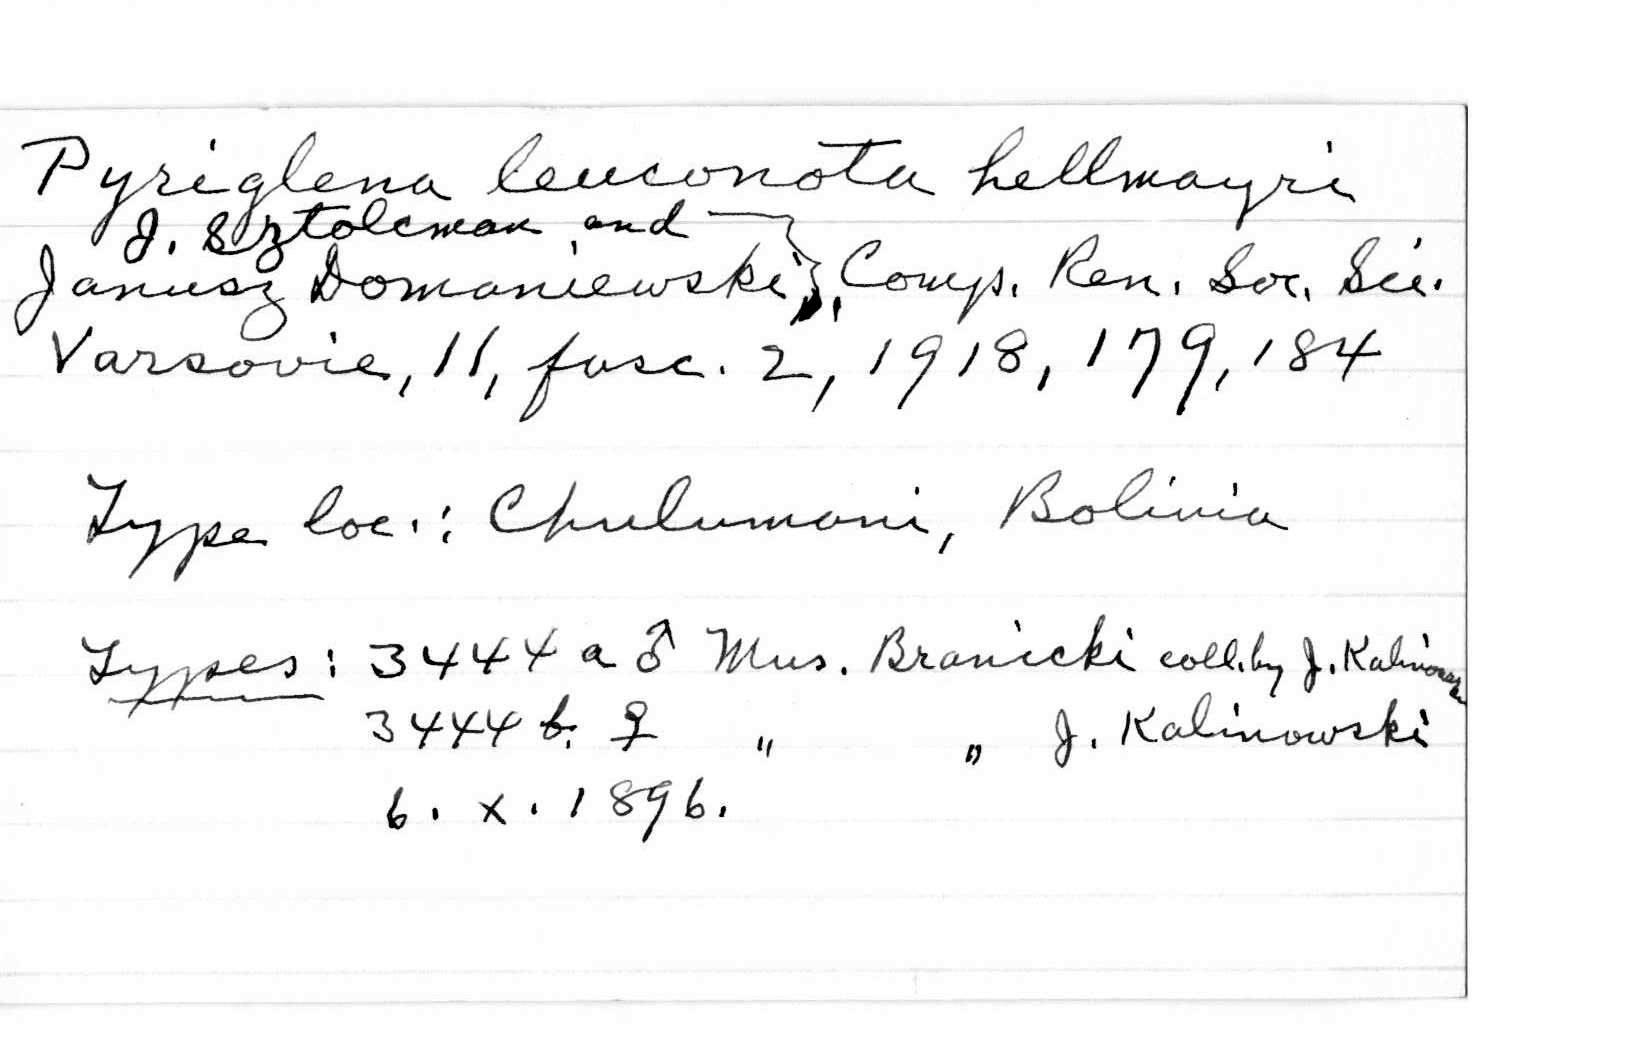 Pyriglena leuconota hellmayri
J. Sztolcman and
Janusz Domaniewski, Comp. Ren. Soc. Sci.
Varsovie, 11, fasc. 2, 1918, 179, 184
Type loc.: Chulumani, Bolivia
Types: 3444 a ♂ Mus. Branicki coll. by J. Kalinowski
3444 b. ♀ " " J. Kalinowski
6. x. 1896.